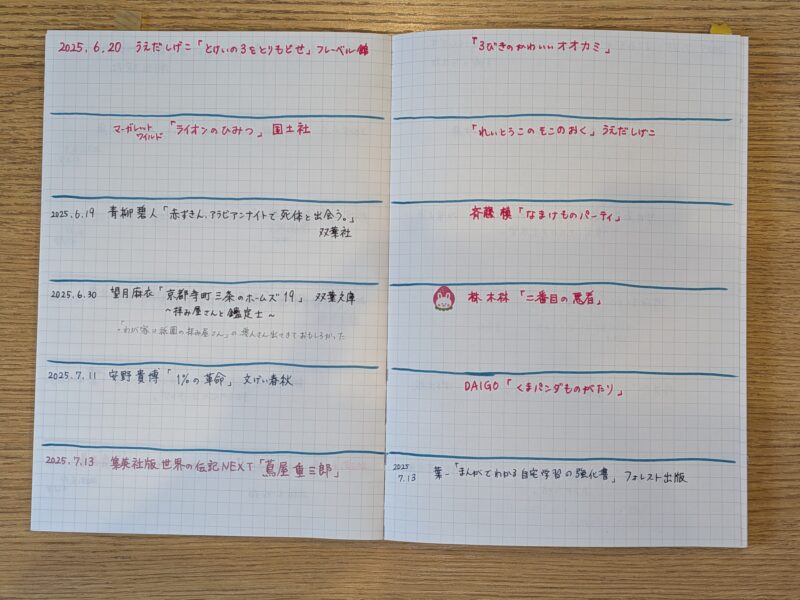 2025.6.20 うえだしげこ「とけいの3をとりもどせ」フレーベル館
マーガレット
ワイルド 「ライオンのひみつ」 国土社
2025.6.19 青柳碧人「赤ずきん、アラビアンナイトで死体と出会う。」
双葉社
2025.6.30 望月麻衣「京都寺町三条のホームズ19」 双葉文庫
〜拝み屋さんと鑑定士〜
・「わが家は祇園の拝み屋さん」の愛人さん出てきておもしろかった
2025.7.11 安野貴博「1%の革命」 文げい春秋
2025.7.13 集英社版 世界の伝記NEXT「蔦屋重三郎」
「3びきのかわいいオオカミ」
「れいとうこのそこのおく」うえだしげこ
斉藤槙「なまけものパーティ」
林木林「二番目の悪者」
DAIGO「くまパンダものがたり」
2025
7.13 葉一「まんがでわかる自宅学習の強化書」 フォレスト出版